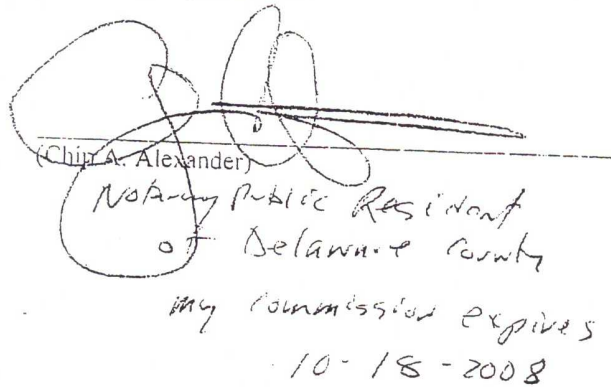 (Chip A. Alexander)
Notary Public Resident
of Delaware County
my commission expires
10-18-2008